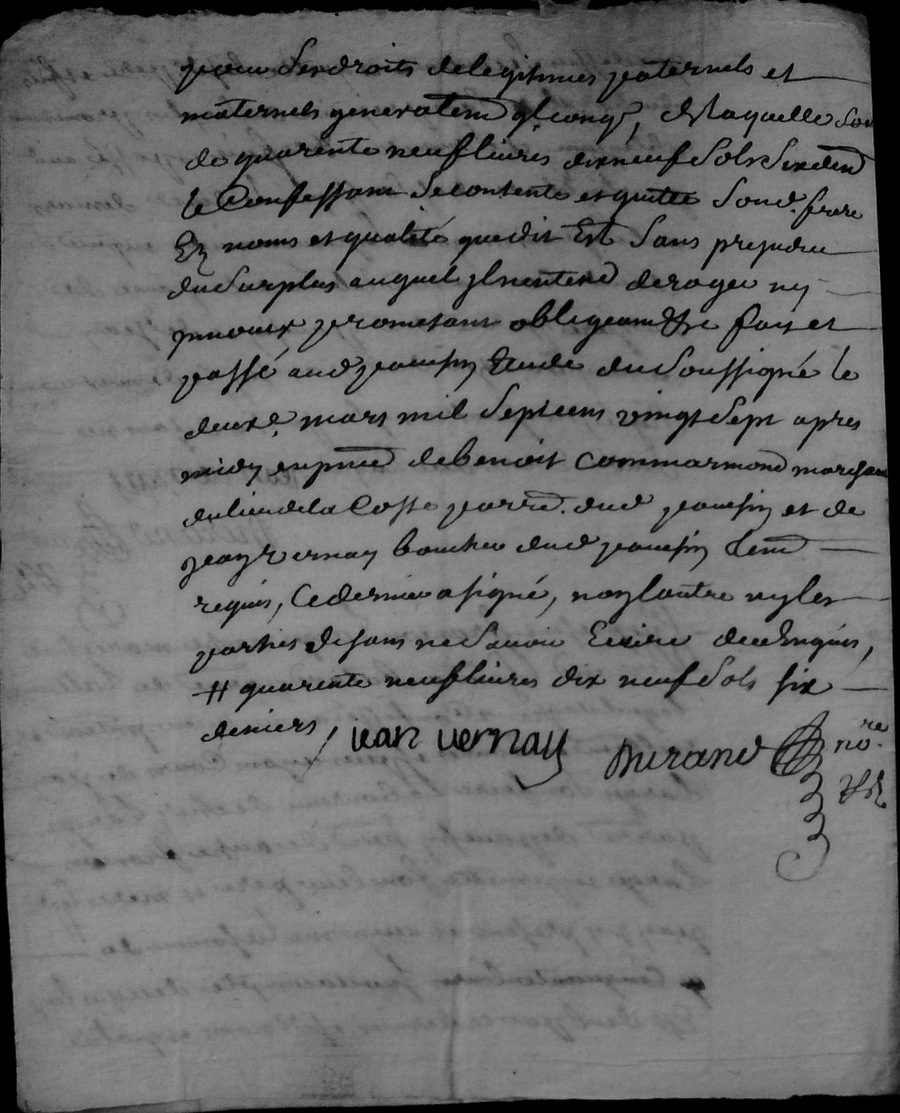 pour ses droits de legitimes paternels et
maternels generalem.t q̃lconq., de laquelle som
de quarente neuf livres dix neuf sols six den
le Confessant se contente et quitte Sond. frere
Ez noms et qualité que dit Est Sans prejudice
du Surplus auquel jl nentend deroger ny
jnnover promettant obligeant &c fait et
passé aud pouussin Etude du Soussigné le
deuxe. mars mil Sept cens vingt Sept apres
midy en pnce de benoit Commarmond marchand
du lieu de la Coste parr. dud et de
jean vernay boucher dud tem
requis, Ce dernier a signé, non lautre ny les
parties disans ne Savoir Ecrire de ce Enquis,
# quarente neuf livres dix neuf Sols six
deniers, jean vernay Durand no.re